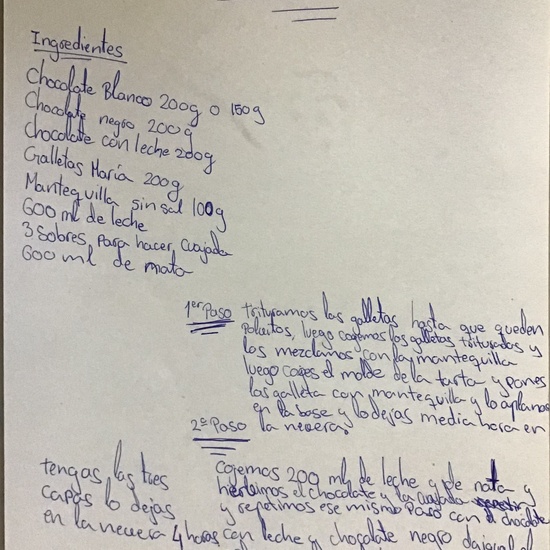 Ingredientes
Chocolate Blanco 200g o 150g
Chocolate negro 200g
Chocolate con leche 200g
Galletas María 200g
Mantequilla sin sal 100g
600 ml de leche
3 sobres para hacer cuajada
600 ml de mata
1er Paso trituramos las galletas hasta que queden
luego cogemos las galletas trituradas y
las mezclamos con la mantequilla
luego coges el molde de la tarta y pones
las galleta con mantequilla y lo aplanas
en la base y lo dejas media hora en
2º Paso la nevera.
Cogemos 200 ml de leche y de nata y
hervimos el chocolate y la cuajada
y repetimos ese mismo paso con el chocolate
con leche y chocolate negro
tengas las tres
capas lo dejas
en la nevera 4 horas